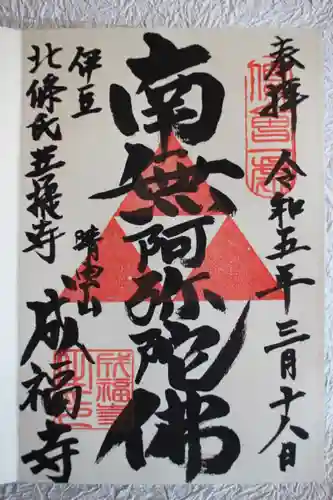 奉拝 令和五年三月十八日
南無阿弥陀佛
伊豆
北條氏菩提寺
晴河山 成福寺
成福寺